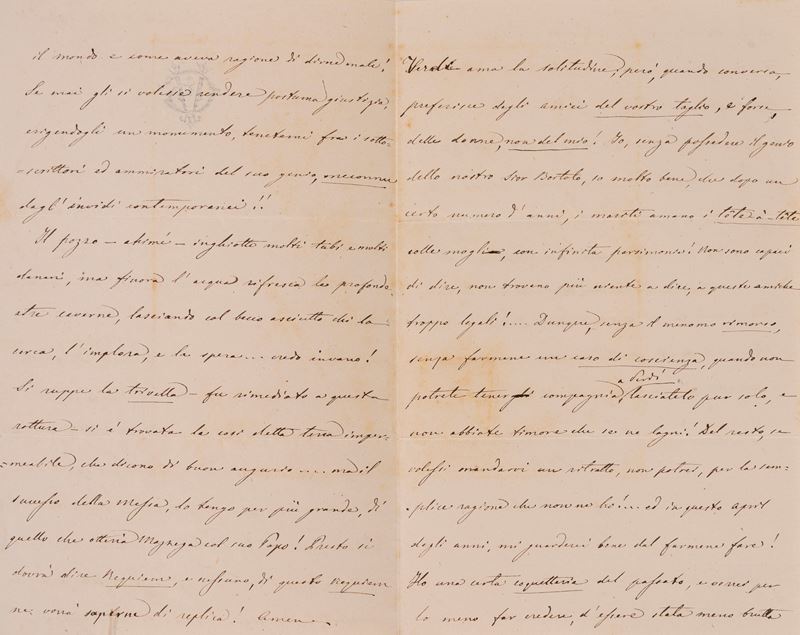 il mondo e come aveva ragione di dirne male!
Se mai gli si volesse rendere postuma giustizia,
erigendogli un monumento, tenetemi fra i sotto=
=scrittori ed ammiratori del suo genio,
dagl' invidi contemporanei!!
Il pozzo – ahimé – inghiotte molti tubi e molti
danari, ma finora l'acqua rifresca le profonde
atre caverne, lasciando col becco asciutto chi la
cerca, l'implora, e la spera... credo invano!
Si ruppe la trivella – fu rimediato a questa
rottura – si é trovata la cosi detta terra imper=
=meabile, che dicono di buon augurio.... ma il
successo della Messa, lo tengo per più grande, di
quello che otterrà col suo Pozzo! Presto si
dovrà dire Requiem, e nessuno, di questo Requiem
ne vorrà saperne di replica! Amen –
Verdi ama la solitudine, però, quando conversa,
preferisce degli amici del vostro taglio, e forse,
delle donne, non del mio! Io, senza possedere il genio
dello nostro Sior Bortolo, so molto bene, che dopo un
certo numero d'anni, i mariti amano i tête à-tête
colle mogli, con infinita parsimonia! Non sono capaci
di dire, non trovano più niente a dire, a queste amiche
troppo legali!.... Dunque, senza il menomo rimorso,
senza farmene un caso di coscienza, quando non
a Verdi
potrete tener compagnia, lasciatelo pur solo, e
non abbiate timore che se ne lagni! Del resto, se
volessi mandarvi un ritratto, non potrei, per la sem=
=plice ragione che non ne hò!... ed in questo april
degli anni, mi guarderei bene dal farmene fare!
Ho una certa coquetterie del passato, e vorrei per
lo meno far credere, d'essere stata meno brutta